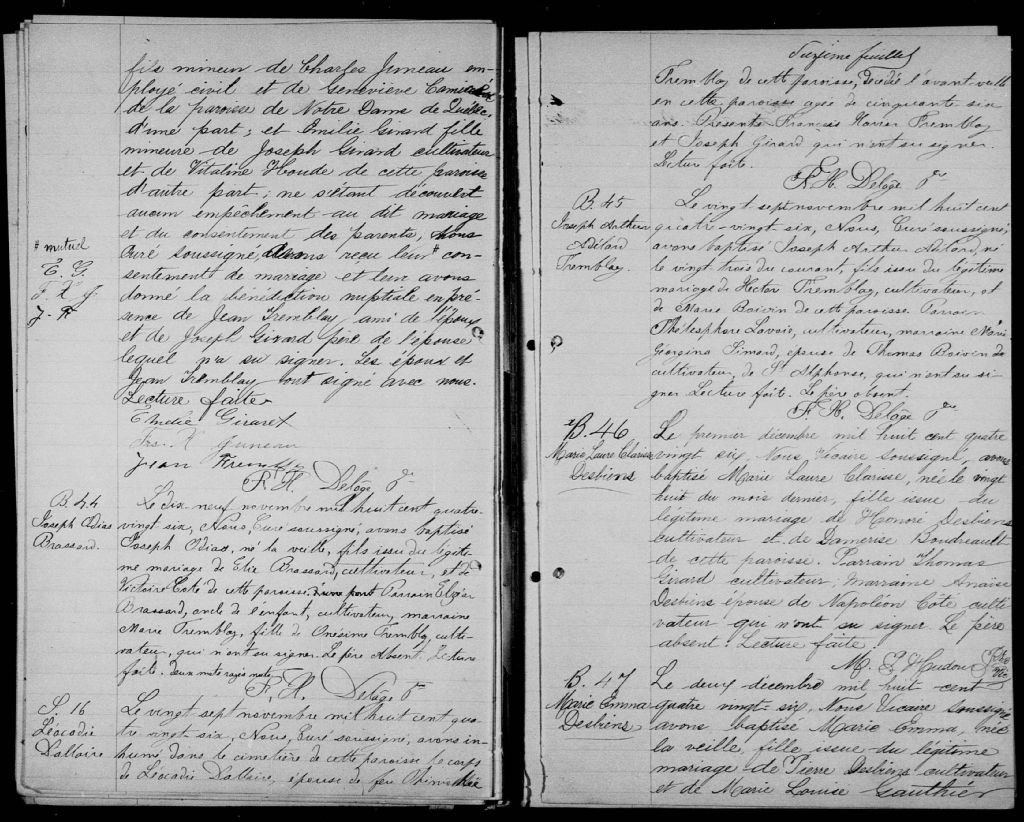 fils mineur de Charles Juneau em-
ployé civil et de Geneviève
de la paroisse de Notre Dame de Québec,
d'une part; et Emilie Girard fille
mineure de Joseph Girard cultivateur
et de Vitaline Houde de cette paroisse
d'autre part; ne s'étant découvert
aucun empêchement au dit mariage
et du consentement des parents, nous
Curé soussigné, avons reçu leur # con-
sentements de mariage et leur avons
donné la bénédiction nuptiale en pré-
sence de Jean Tremblay ami de l'époux
et de Joseph Girard père de l'épouse
lequel n'a su signer. Les époux et
Jean Tremblay ont signé avec nous.
Lecture faite
# mutuel
E. G.
J. T.
Emelie Girard
Juneau
Jean Tremblay
F. H. Delâge Ptre
B. 44
Joseph Odias
Brassard.
Le dix-neuf novembre mil huit cent quatre-
vingt six, Nous, Curé soussigné, avons baptisé
Joseph Odias, né la veille, fils issu du légiti-
me mariage de Elie Brassard, cultivateur, et de
Victoire Coté de cette paroisse. Parrain Elzéar
Brassard, oncle de l'enfant, cultivateur, marraine
Marie Tremblay, fille de Onésime Tremblay, culti-
vateur, qui n'ont su signer. Le père Absent. Lecture
faite. Deux mots rayés nuls.
F. H. Delâge Ptre
S. 16
Léocadie
Dallaire
Le vingt sept novembre mil huit cent qua-
tre vingt six, Nous, Curé soussigné, avons in-
humé dans le cimetière de cette paroisse le corps
de Léocadie Dallaire, épouse de feu
feuillet
Tremblay de cette paroisse, décédée l'avant veille
en cette paroisse agée de cinquante six
ans. Présents François Xavier Tremblay
et Joseph Girard qui n'ont su signer.
Lecture faite.
F. H. Delâge Ptre
B. 45
Joseph Arthur
Adélard
Tremblay.
Le vingt sept novembre mil huit cent
quatre-vingt six, Nous, Curé soussigné,
avons baptisé Joseph Arthur Adélard, né
le vingt trois du courant, fils issu du légitime
mariage de Hector Tremblay, cultivateur, et
de Marie Boivin de cette paroisse. Parrain
Thélesphore Lavoie, cultivateur, marraine Marie
Georgina Simard, épouse de Thomas Boivin
cultivateur, de St Alphonse, qui n'ont su si-
gner Lecture faite. Le père absent.
F. H. Delâge Ptre
B. 46
Marie Laure Clarisse
Desbiens
Le premier décembre mil huit cent quatre
vingt six, Nous, Vicaire soussigné, avons
baptisé Marie Laure Clarisse, née le vingt
huit du mois dernier, fille issue du
légitime mariage de Honoré Desbiens
Cultivateur et de Damerise Boudreault
de cette paroisse. Parrain Thomas
Girard cultivateur; Marraine Anaïse
Desbiens épouse de Napoléon Coté culti
vateur qui n'ont su signer. Le père
absent. Lecture faite.
Hudon Ptre
Vic
B. 47
Marie Emma
Desbiens
Le deux décembre mil huit cent
quatre vingt-six, Nous Vicaire soussigné
avons baptisé Marie Emma, née
la veille, fille issue du légitime
mariage de Pierre Desbiens cultivateur
et de Marie Louise Gauthier